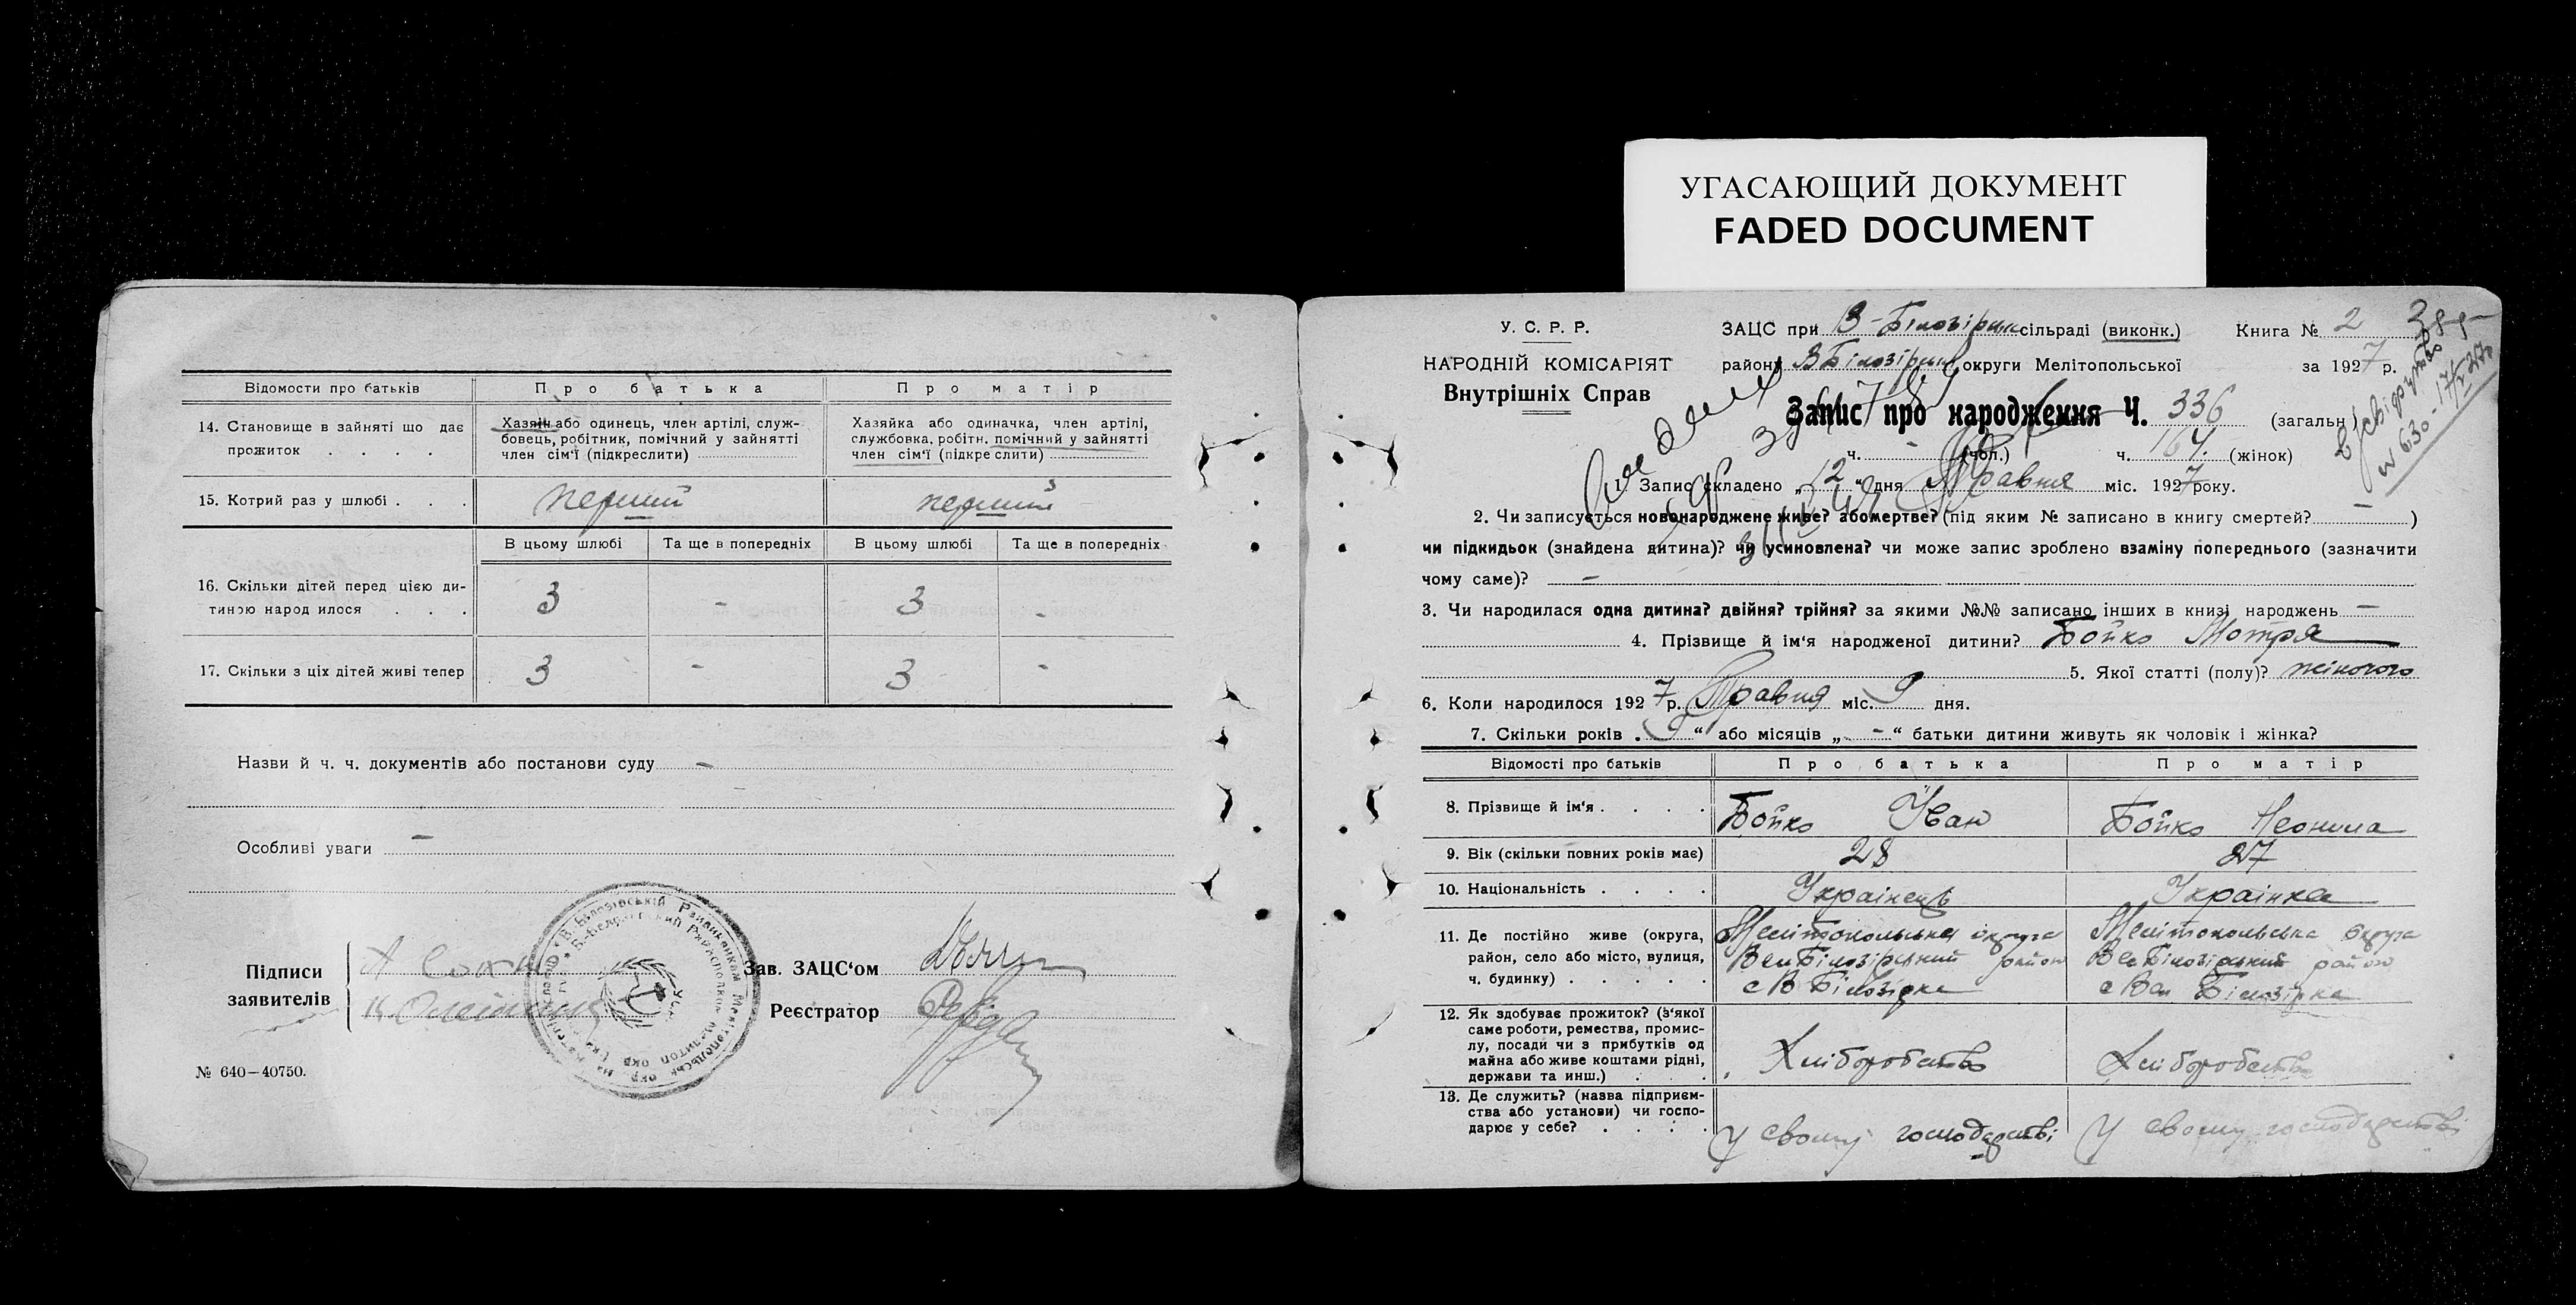 УГАСАЮЩИЙ ДОКУМЕНТ
FADED DOCUMENT
Відомости про батьків
Про батька
Про матір
14. Становище в зайняті що дає прожиток . . . .
Хазяїн або одинець, член артілі, служ-
бовець, робітник, помічний у зайнятті
член сім'ї (підкреслити)
Хазяйка або одиначка, член артілі,
службовка, робітн. помічний у зайнятті
член сім'ї (підкреслити)
15. Котрий раз у шлюбі . . .
перший
перший
В цьому шлюбі
Та ще в попередніх
В цьому шлюбі
Та ще в попередніх
16. Скільки дітей перед цією ди-
тиною народ илося . . .
3 - 3 -
17. Скільки з ціх дітей живі тепер
3 - 3 -
Назви й ч. ч. документів або постанови суду -
Особливі уваги -
Підписи
заявителів
Зав. ЗАЦС'ом
Реєстратор
№ 640—40750.
У. С. Р. Р.
НАРОДНІЙ КОМІСАРІЯТ
Внутрішніх Справ
ЗАЦС при В-Білозірськ сільраді (виконк.)
Книга № 2
району ВБілозірськ округи Мелітопольської
за 1927 р.
Запис про народження Ч. 336 (загальн.)
ч. - (чол.) ч. 164. (жінок)
1. Запис складено „12" дня Травня міс. 1927 року.
2. Чи записується новонароджене живе? або мертве? (під яким № записано в книгу смертей? - )
чи підкидьок (знайдена дитина)? чи усиновлена? чи може запис зроблено взаміну попереднього (зазначити
чому саме)? -
3. Чи народилася одна дитина? двійня? трійня? за якими №№ записано інших в книзі народжень -
4. Прізвище й ім'я народженої дитини? Бойко Мотря
5. Якої статті (полу)? жіночого
6. Коли народилося 1927 р. Травня міс. 9 дня.
7. Скільки років „9" або місяців „-" батьки дитини живуть як чоловік і жінка?
Відомості про батьків
Про батька
Про матір
8. Прізвище й ім'я . . . .
Бойко Іван
Бойко Неонила
9. Вік (скільки повних років має)
28
27
10. Національність . . . .
Українець
Українка
11. Де постійно живе (округа,
район, село або місто, вулиця,
ч. будинку) . . . . .
Мелітопольська округа
Вел Білозірський район
с В Білозірка
Мелітопольська округа
Вел Білозірський район
с Вел Білозірка
12. Як здобуває прожиток? (з'якої
саме роботи, ремества, промис-
лу, посади чи з прибутків од
майна або живе коштами рідні,
держави та инш.) . . .
Хліборобство
Хліборобство
13. Де служить? (назва підприєм-
ства або установи) чи госпо-
дарює у себе? . . . .
у своему господарстві
у своему господарстві